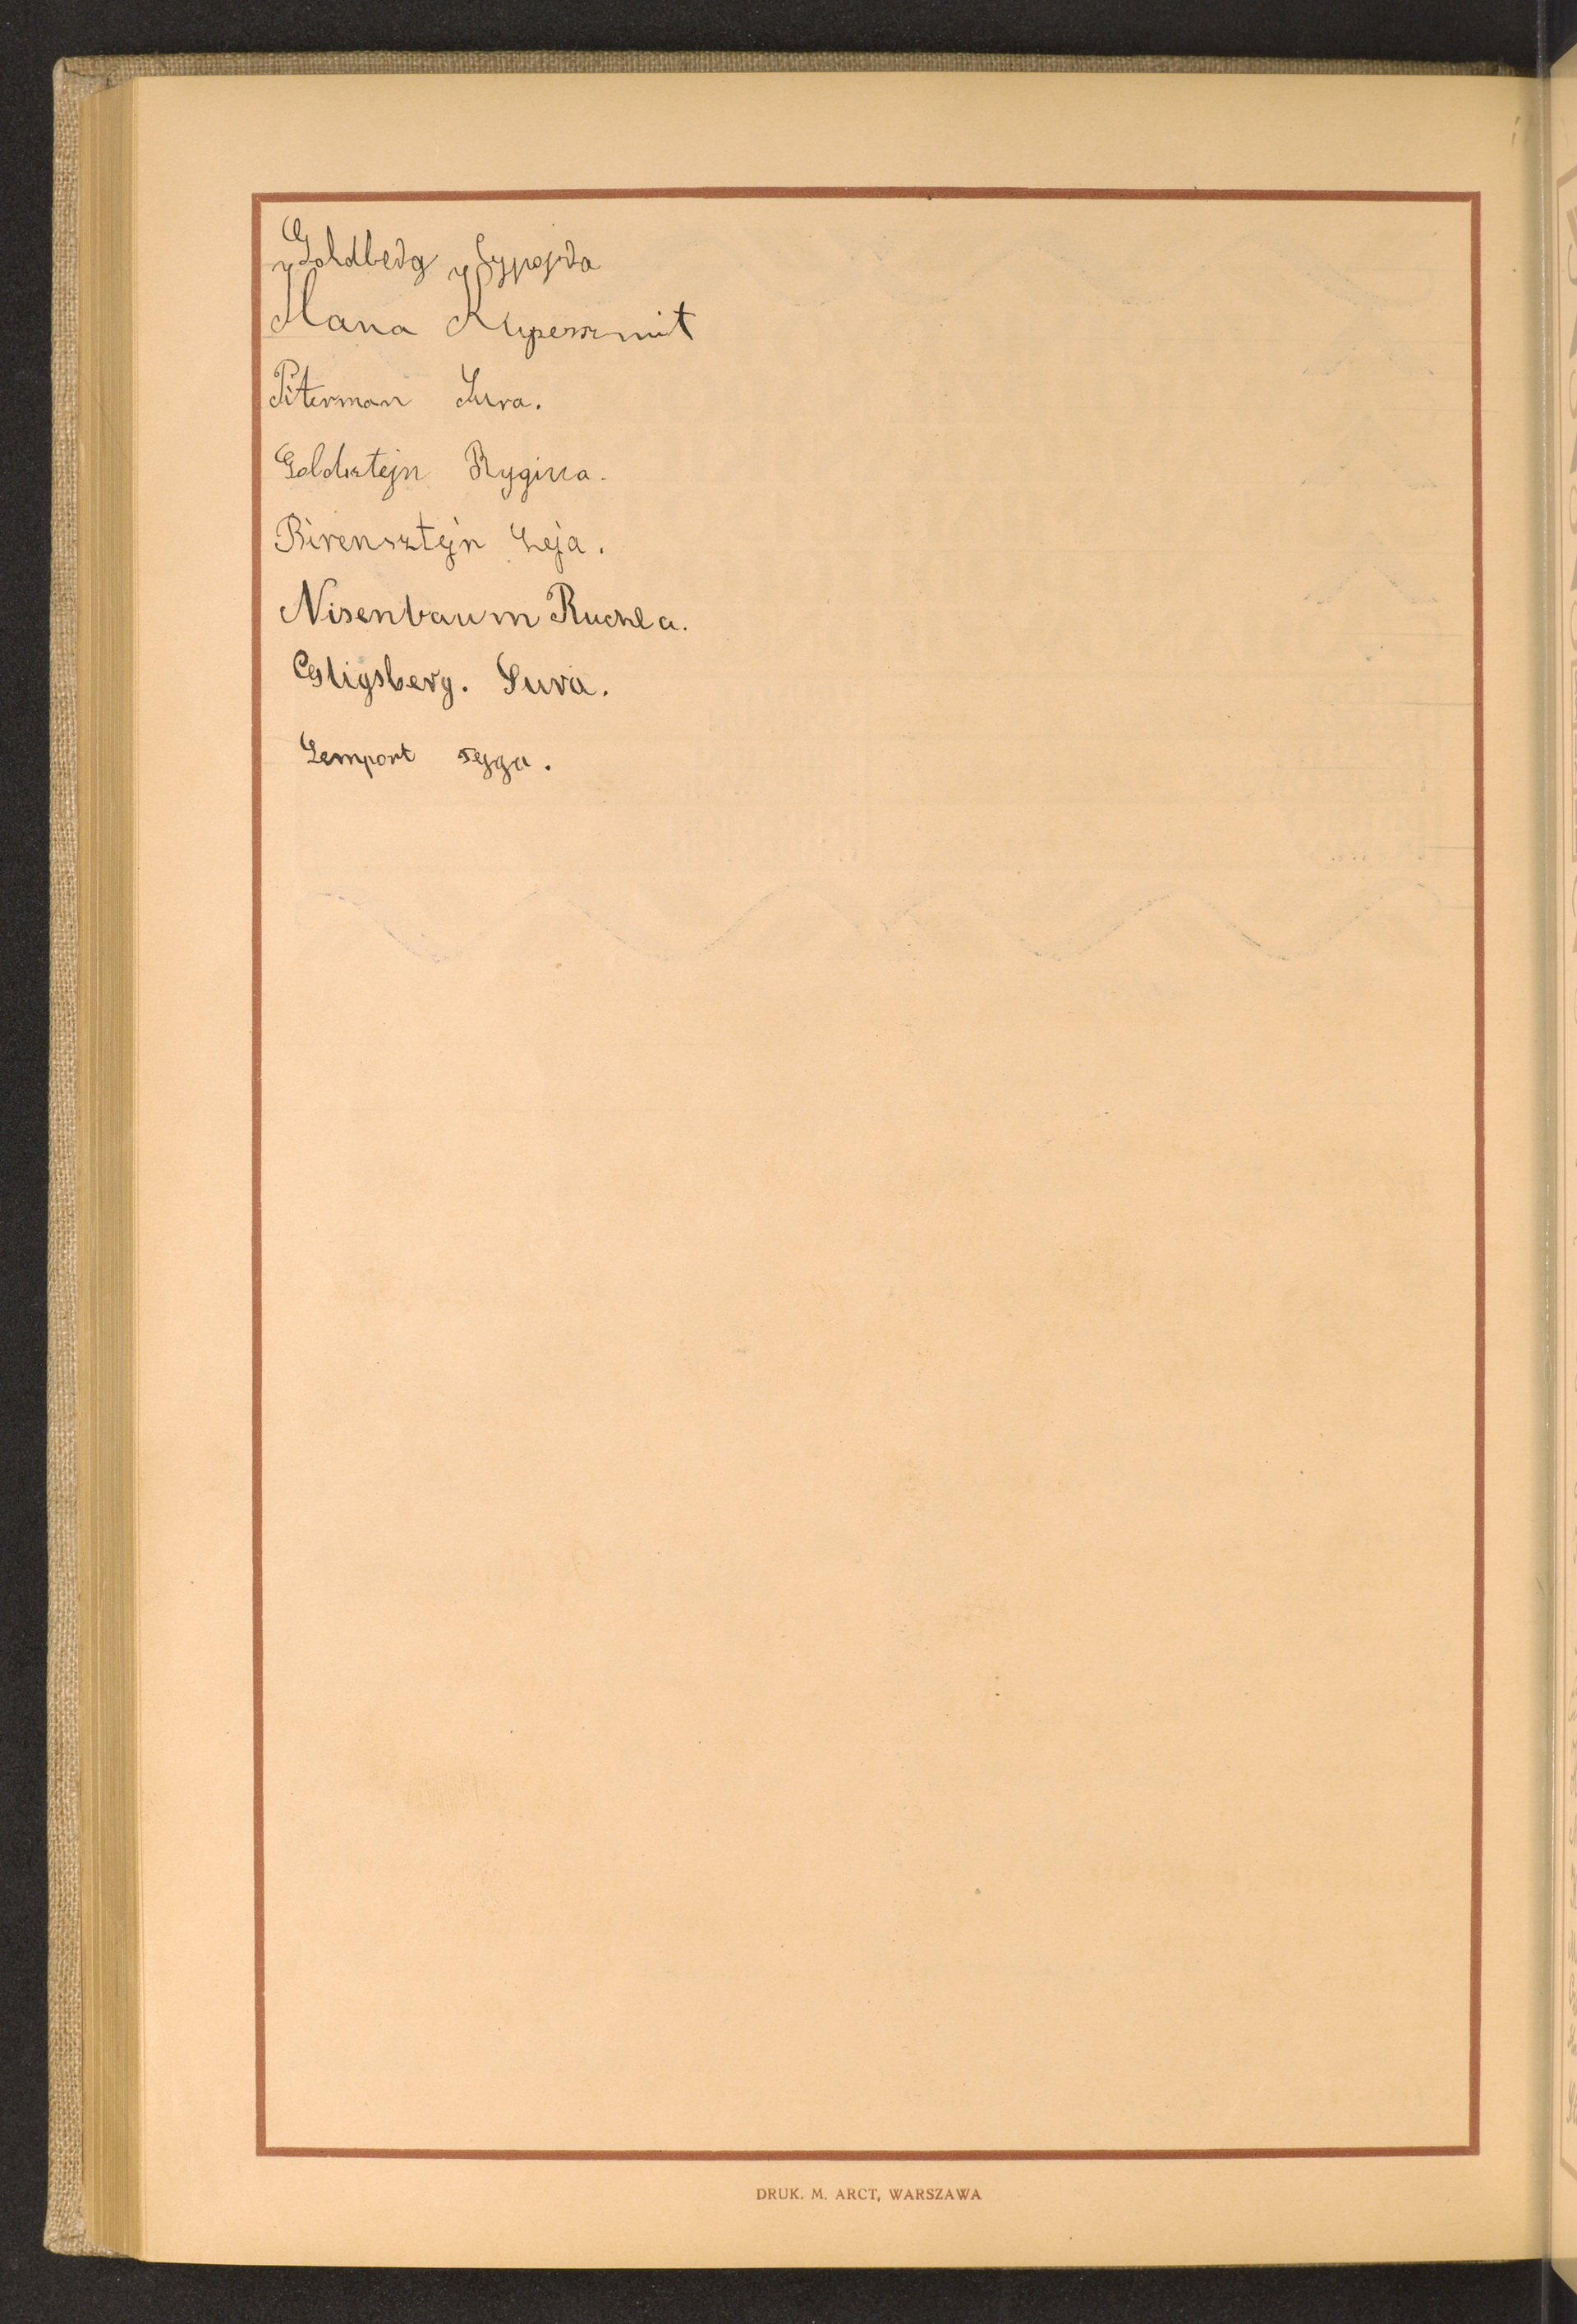 Goldberg Cypojra
Hana Kupersmit
Piterman Sura.
Goldsztejn Rygina.
Birensztejn Leja.
Nisenbaum Ruchla.
Gligsberg. Sura.
Lemport Fyga.
DRUK. M. ARCT, WARSZAWA